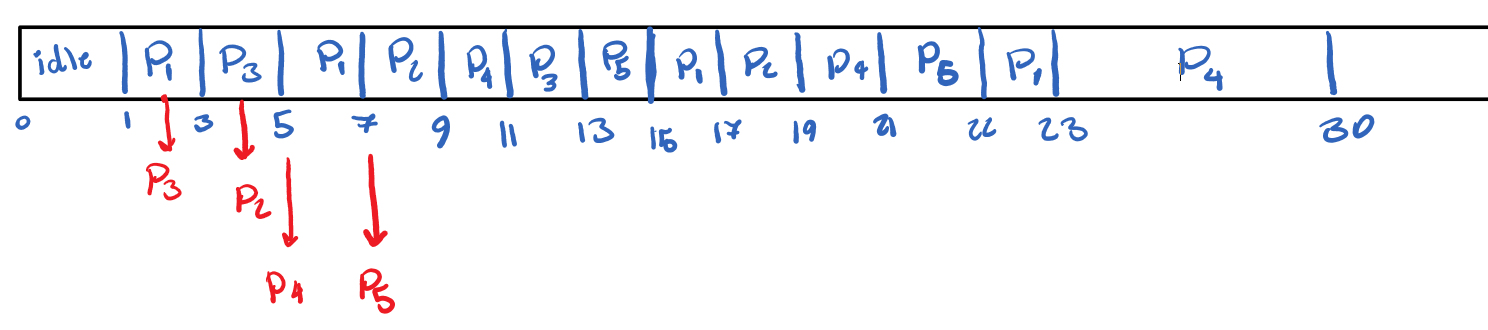 idle P1 P3 P1 P2 P4 P3 P5 P1 P2 P4 P5 P1 P4
0 1 3 5 7 9 11 13 15 17 19 21 22 23 30
P3
P2
P4 P5